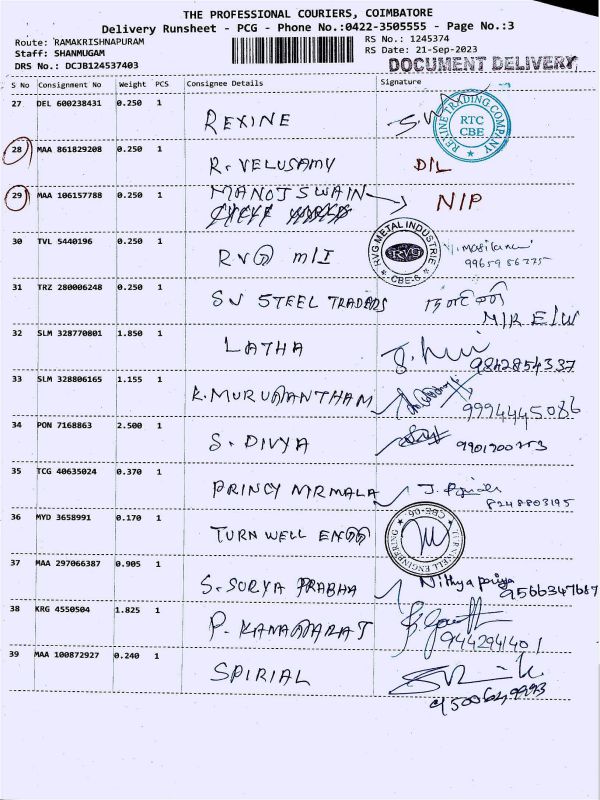 THE PROFESSIONAL COURIERS, COIMBATORE
Delivery Runsheet - PCG - Phone No.:0422-3505555 - Page No.:3
Route: RAMAKRISHNAPURAM
RS No.: 1245374
Staff: SHANMUGAM
RS Date: 21-Sep-2023
DRS No.: DCJB124537403
DOCUMENT DELIVERY
S No Consignment No Weight PCS Consignee Details Signature
27 DEL 600238431 0.250 1
REXINE
REXINE TRADING COMPANY
RTC
CBE
28 MAA 861829208 0.250 1
R. VELUSAMY D/L
29 MAA 106157788 0.250 1
MANOJ SWAIN N/P
30 TVL 5440196 0.250 1
RVG M/I
RVG METAL INDUSTRIE
RVG
CBE-6
99659 86775
31 TRZ 280006248 0.250 1
SV STEEL TRADERS
M/R E/W
32 SLM 328770801 1.850 1
LATHA
9842854337
33 SLM 328806165 1.155 1
K. MURUGANTHAM
9994445086
34 PON 7168863 2.500 1
S. DIVYA
35 TCG 40635024 0.370 1
PRINCY NIRMALA
8248803195
36 MYD 3658991 0.170 1
TURN WELL ENGG
TURNWELL ENGINEERING
CBE-06
37 MAA 297066387 0.905 1
S. SURYA PRABHA
Nithya priya
9566347687
38 KRG 4550504 1.825 1
P. KANAGARAJ
9442941401
39 MAA 100872927 0.240 1
SPIRIAL